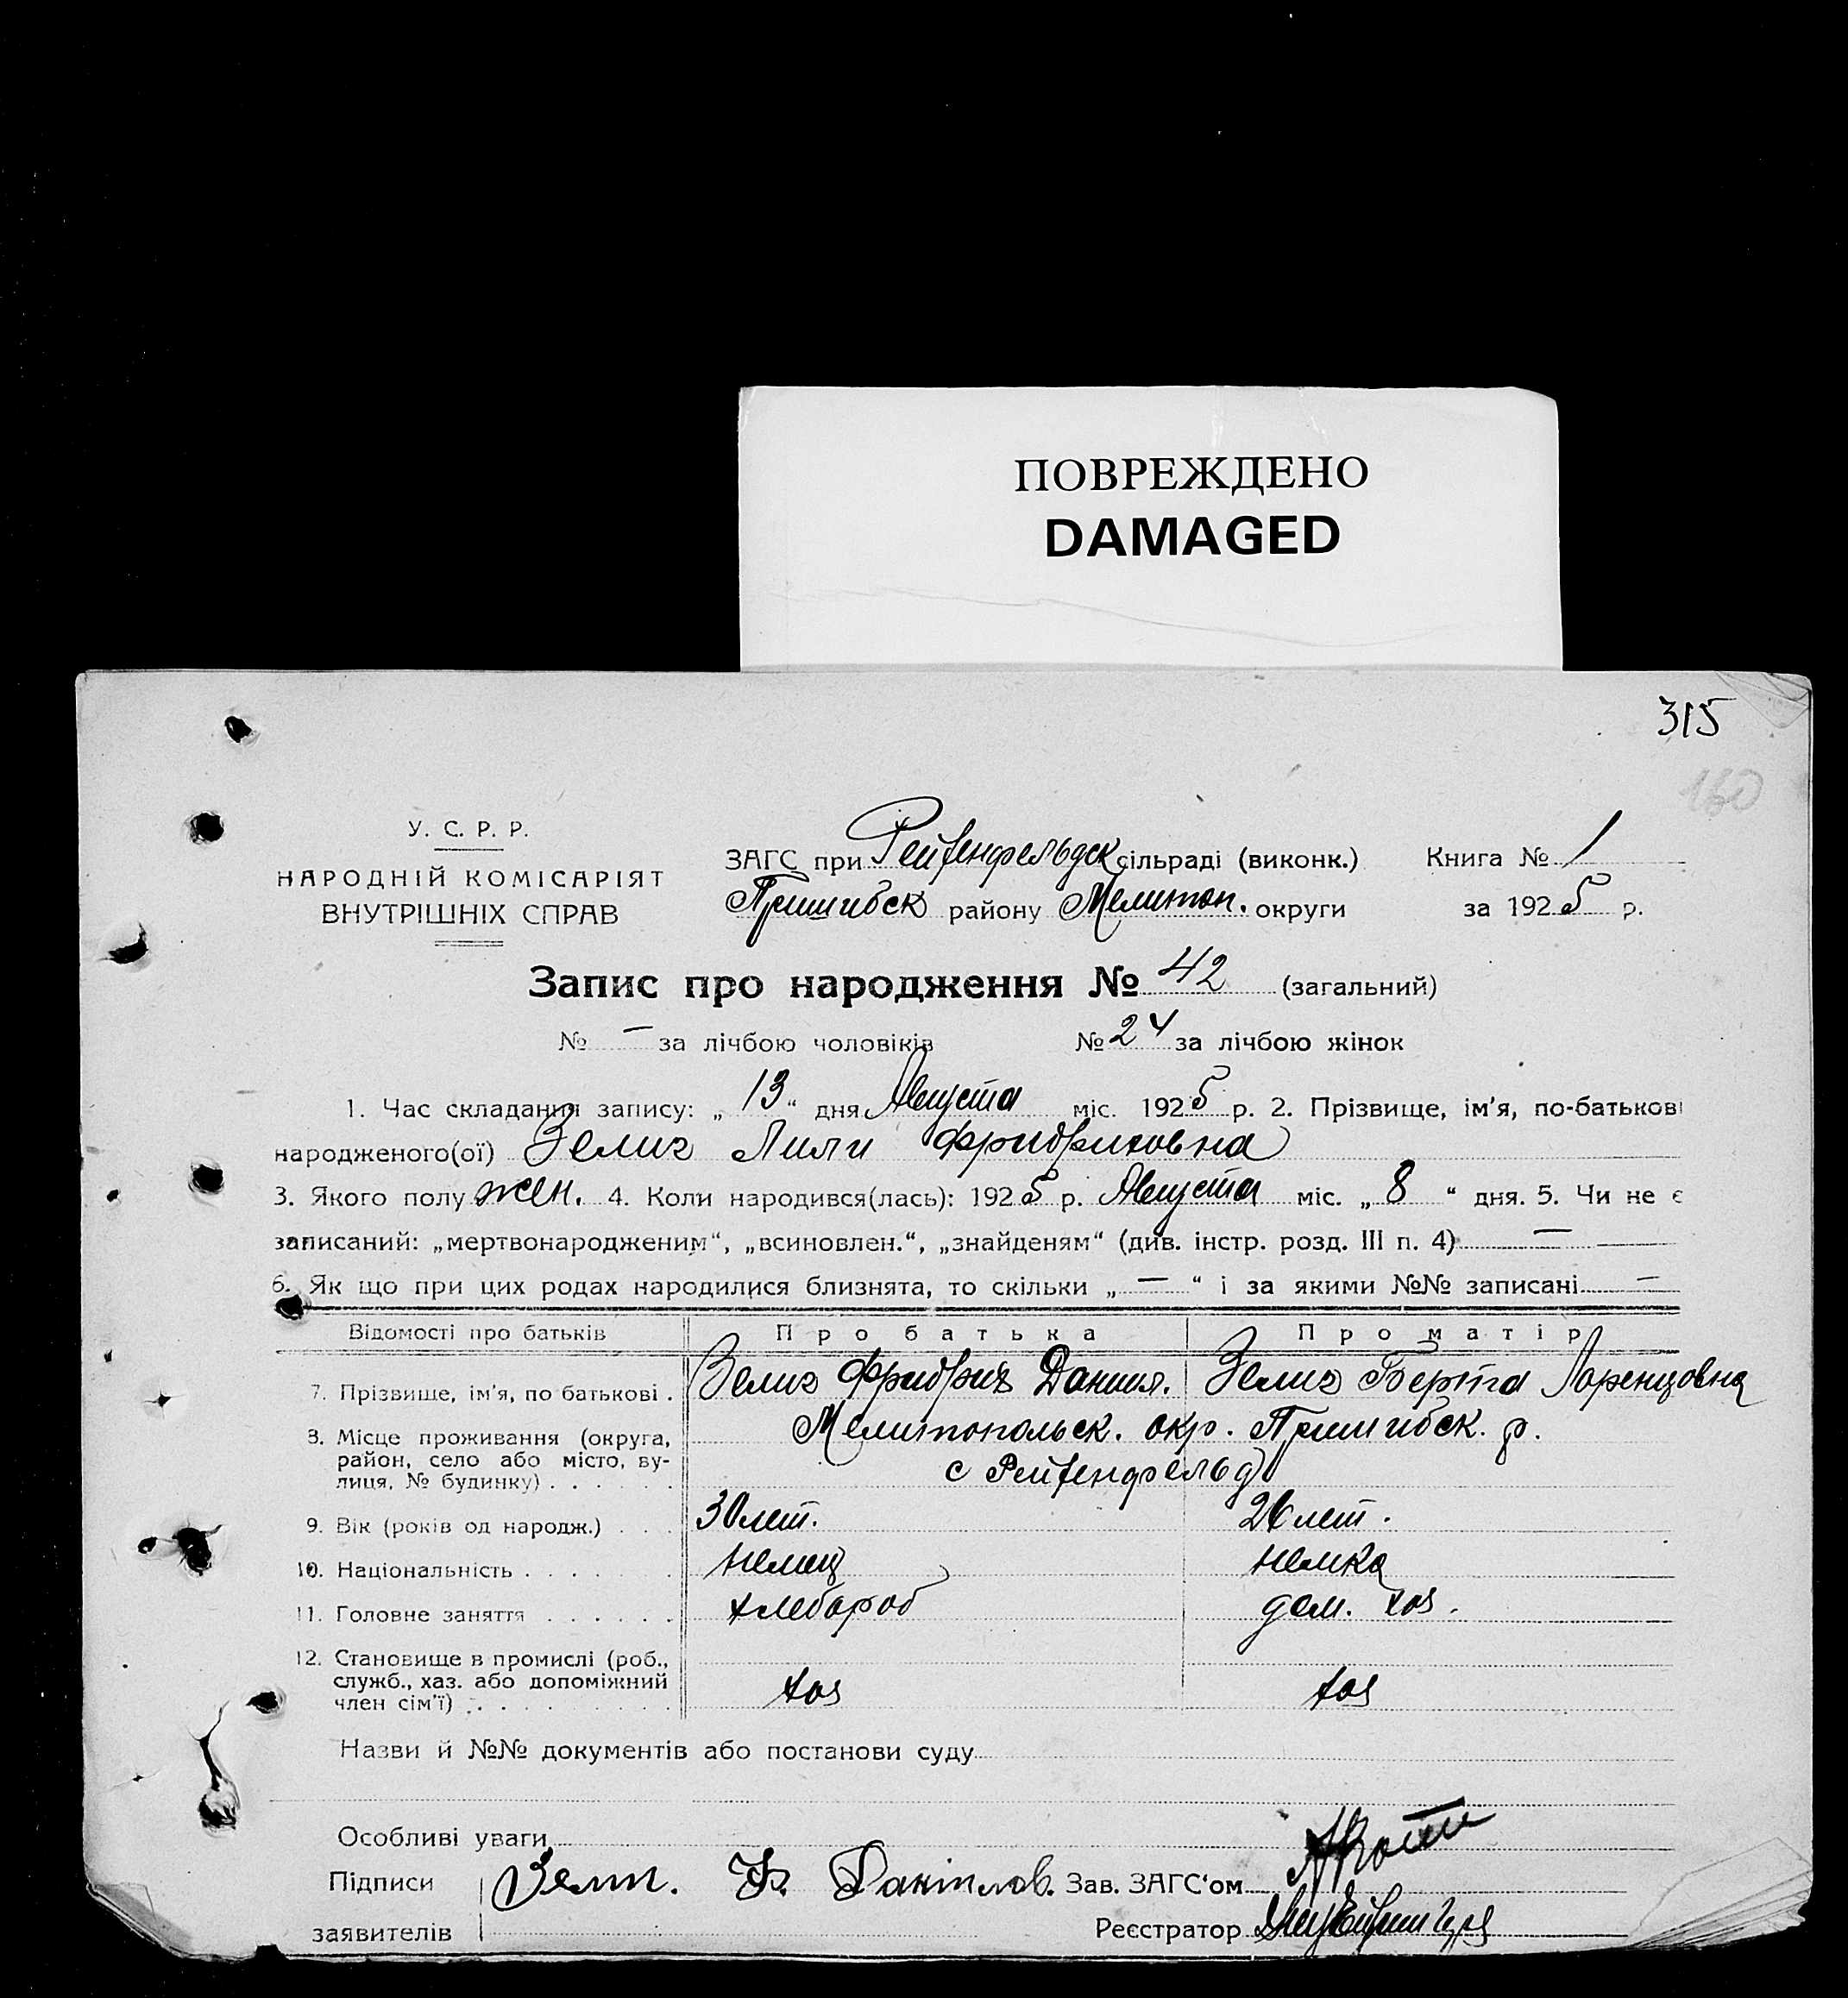 ПОВРЕЖДЕНО
DAMAGED
315
160
У. С. Р. Р.
НАРОДНІЙ КОМІСАРІЯТ
ВНУТРІШНІХ СПРАВ
ЗАГС при Рейхенфельдск сільраді (виконк.) Книга № 1
Пришибск району Мелитоп. округи за 1925 р.
Запис про народження № 42 (загальний)
№ — за лічбою чоловіків № 24 за лічбою жінок
1. Час складання запису: „13“ дня Августа міс. 1925 р. 2. Прізвище, ім'я, по-батькові
народженого(ої) Зелиг Лили Фридриховна
3. Якого полу жен. 4. Коли народився(лась): 1925 р. Августа міс. „8“ дня. 5. Чи не є
записаний: „мертвонародженим“, „всиновлен.“, „знайденям“ (див. інстр. розд. III п. 4) —
6. Як що при цих родах народилися близнята, то скільки „—“ і за якими №№ записані —
Відомості про батьків Про батька Про матір
7. Прізвище, ім'я, по батькові . Зелиг Фридрих Даниил. Зелиг Берта Лоренцовна
8. Місце проживання (округа, район, село або місто, вулиця, № будинку) . . . . . . Мелитопольск. окр. Пришибск. р.
с Рейхенфельд
9. Вік (років од народж.) . . . 30 лет. 26 лет.
10. Національність . . . . . . . немец немка
11. Головне заняття . . . . . . хлебороб дом. хоз.
12. Становище в промислі (роб., служб., хаз. або допоміжний член сім'ї) . . . . . . . . . хоз хоз
Назви й №№ документів або постанови суду
Особливі уваги
Підписи Зелиг. Ф. Даніилов. Зав. ЗАГС'ом
заявителів Реєстратор